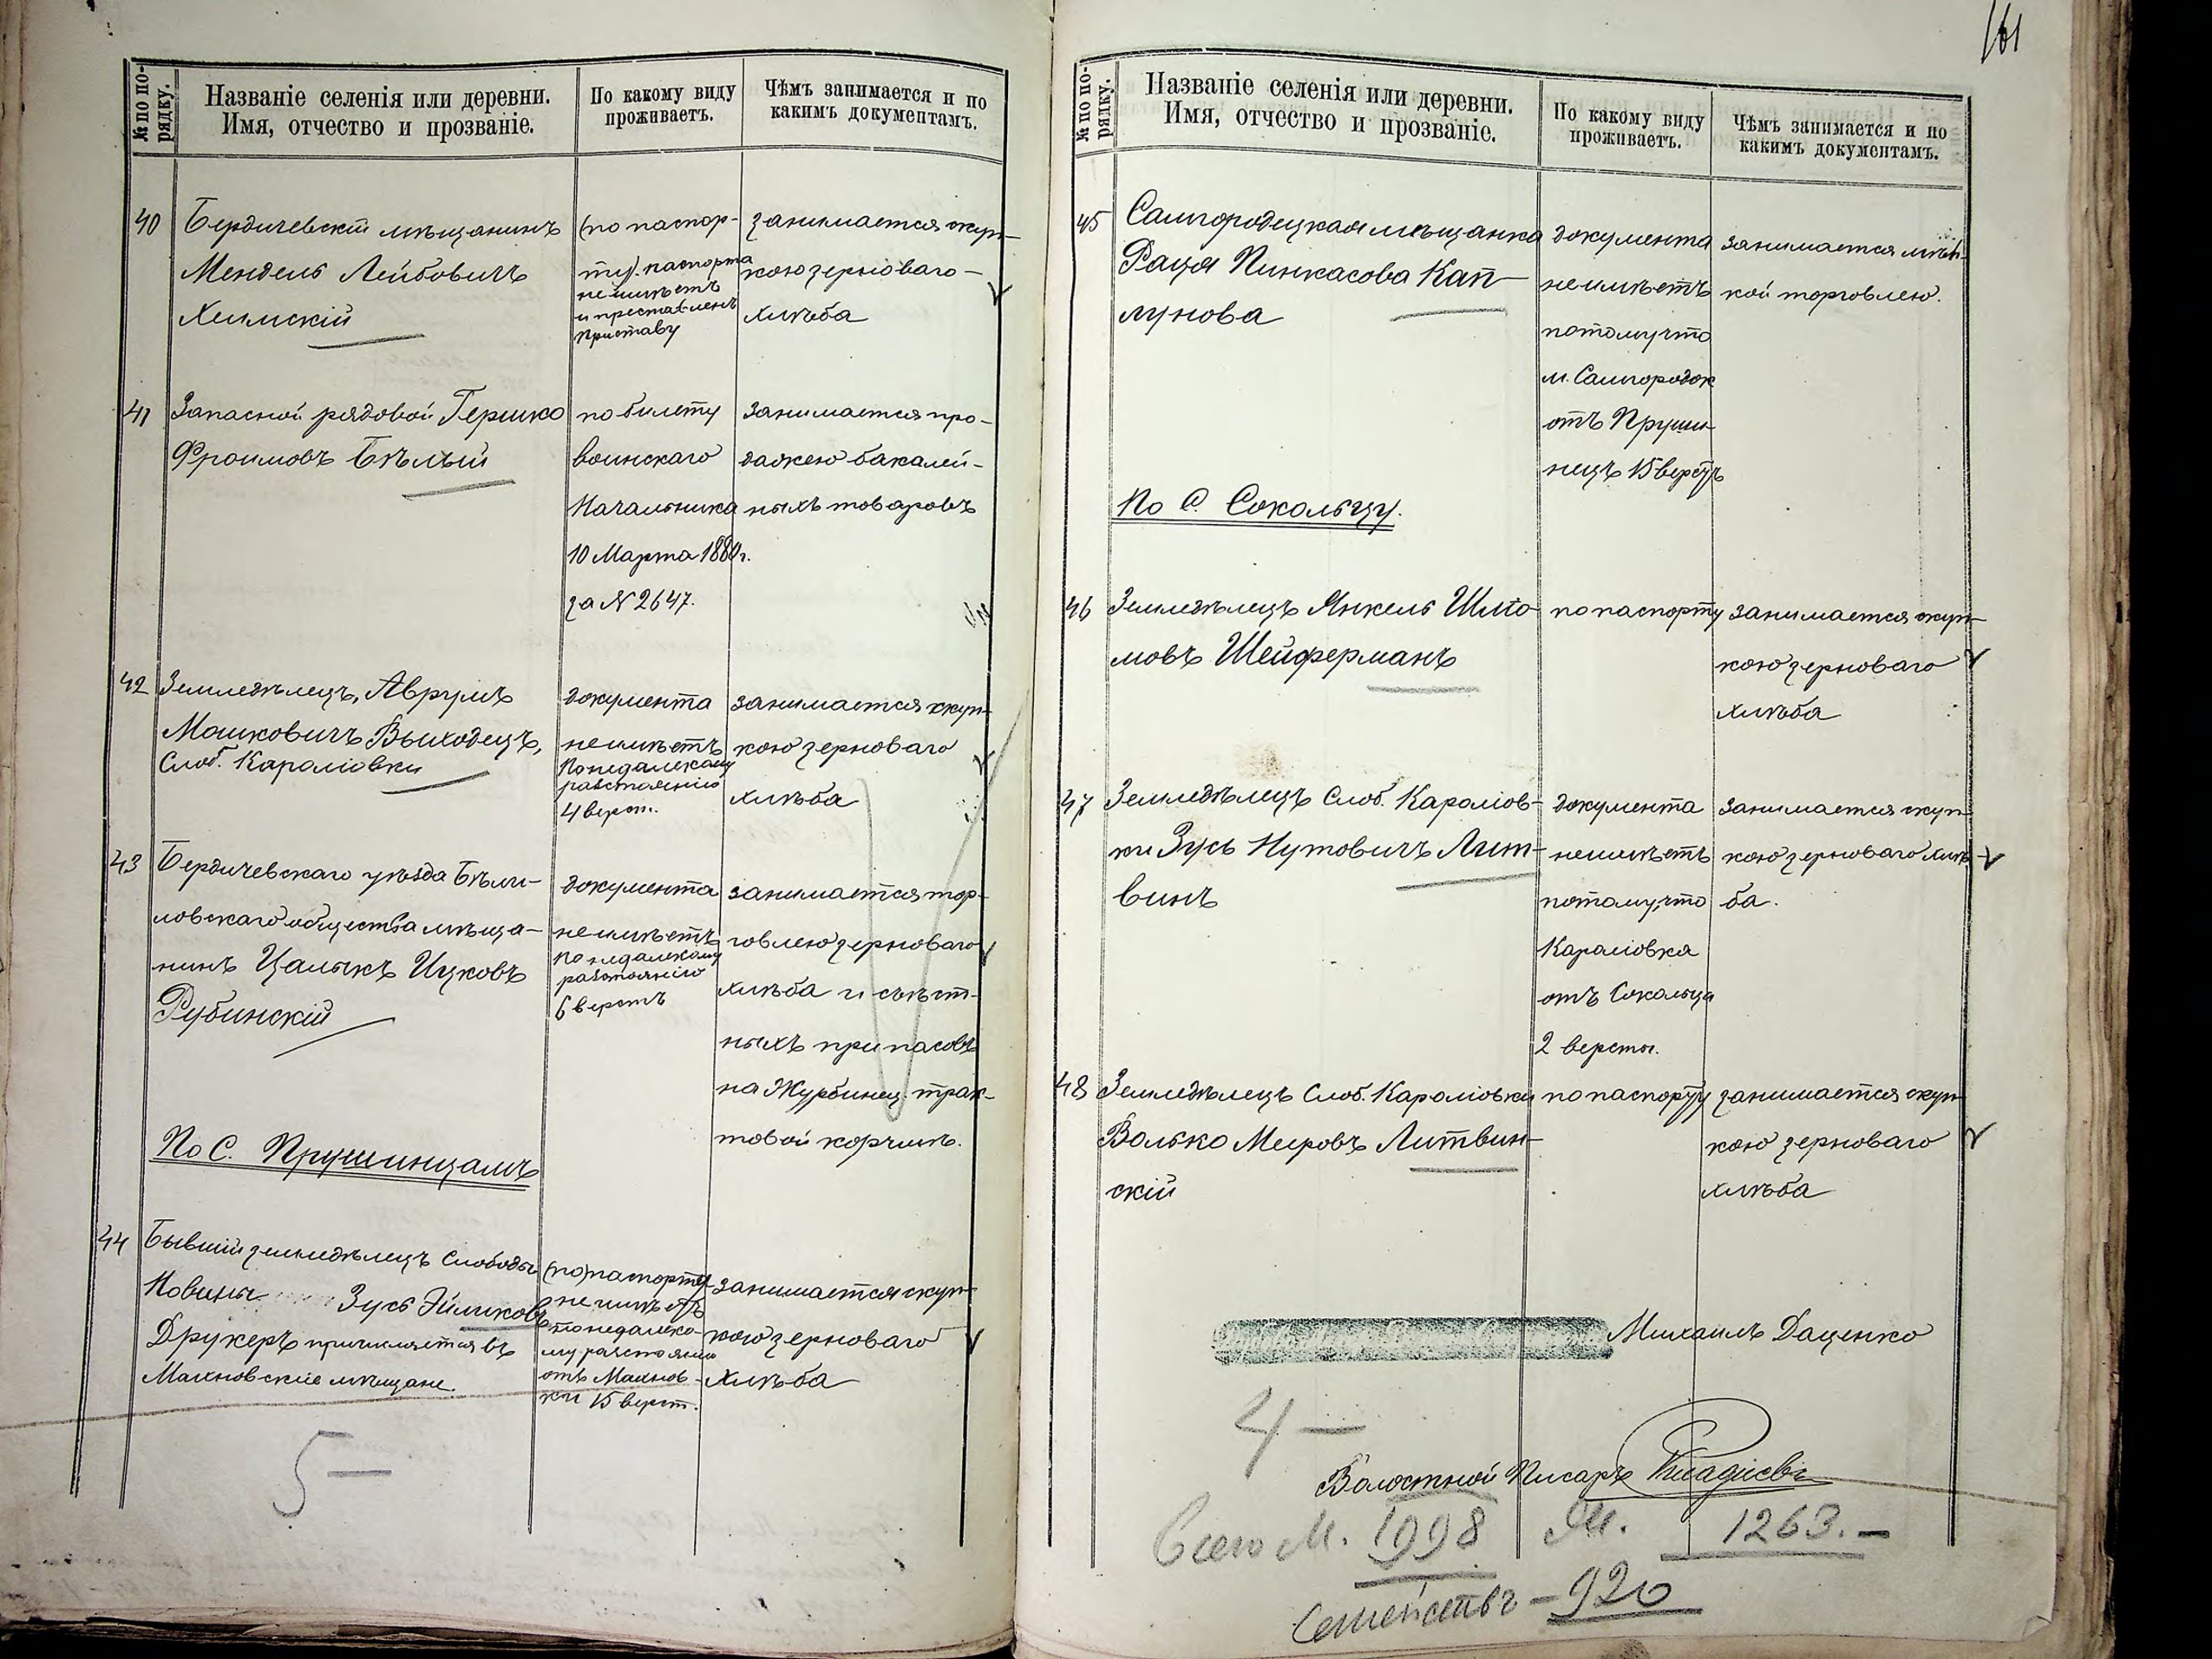 № по по-
рядку.
Названіе селенія или деревни.
Имя, отчество и прозваніе.
По какому виду
проживаетъ.
Чѣмъ занимается и по
какимъ документамъ.
40
Бердичевскій мѣщанинъ
Мендель Лейбовичъ
Хелмскій
(по паспор-
ту). паспорта
не имѣетъ
и преставленъ
приставу
занимается скуп-
кою зерноваго
хлѣба
41
Запасной рядовой Гершко
Фроимовъ Бѣлый
по билету
воинскаго
Начальника
10 Марта 1880 г.
за № 2647.
занимается про-
дажею бакалей-
ныхъ товаровъ
42
Земледѣлецъ, Аврумъ
Мошковичъ Выходецъ,
Слоб. Каролiовки
документа
не имѣетъ
По недалекому
разстоянію
4 верст.
занимается скуп-
кою зерноваго
хлѣба
43
Бердичевскаго уѣзда Бѣли-
ловскаго общества мѣща-
нинъ Цалыкъ Ицковъ
Рубинскій
документа
не имѣетъ
По недалекому
разстоянію
6 верстъ
занимается тор-
говлею зерноваго
хлѣба и съѣст-
ныхъ припасовъ
на Журбинец. трак-
товой корчмѣ.
По С. Прушинцамъ
44
Бывшій земледѣлецъ Слободы
Новины Зусь Эйликовъ
Друкеръ причисляется въ
Махновскіе мѣщане.
(по) паспорту
не имѣетъ
по недалеко-
му разстоянію
отъ Махнов-
ки 15 верст.
занимается скуп-
кою зерноваго
хлѣба
5 —
161
№ по по-
рядку.
Названіе селенія или деревни.
Имя, отчество и прозваніе.
По какому виду
проживаетъ.
Чѣмъ занимается и по
какимъ документамъ.
45
Самгородецкая мѣщанка
Рація Пинкасова Кап-
лунова
документа
не имѣетъ
потому что
м. Самгородок
отъ Пруши-
нецъ 15 верстъ
занимается мѣл-
кой торговлею.
По С. Сокольцу.
46
Земледѣлецъ Янкель Шліо-
мовъ Шейферманъ
по паспорту
занимается скуп-
кою зерноваго
хлѣба
47
Земледѣлецъ Слоб. Каролiов-
ки Зусь Нутовичъ Лит-
винъ
документа
не имѣетъ
потому, что
Каролiовка
отъ Сокольца
2 версты.
занимается скуп-
кою зерноваго хлѣ-
ба.
48
Земледѣлецъ Слоб. Каролiовки
Волько Меировъ Литвин-
скій
по паспорту
занимается скуп-
кою зерноваго
хлѣба
Михаилъ Даценко
4 —
Волостной Писарь
Всего М. 1998 Ж. 1263. —
Семействъ — 920